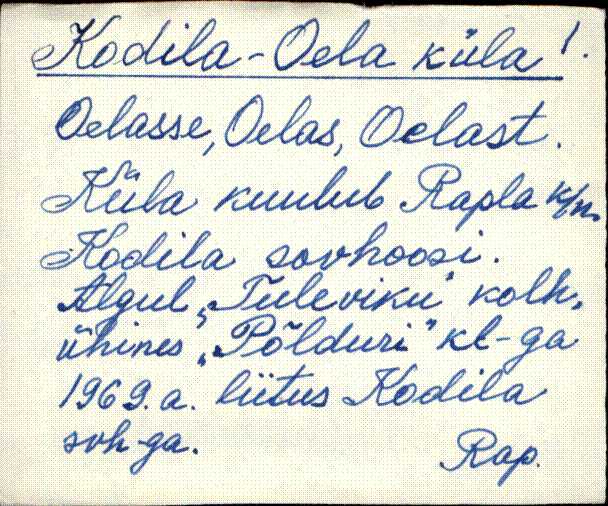 Kodila-Oela küla 1.
Oelasse, Oelas, Oelast.
Küla kuulub Rapla k/n.
Kodila sovhoosi.
Algul „Tuleviku" kolh.
ühines „Põlduri" kl-ga
1969. a. liitus Kodila
svh-ga.
Rap.